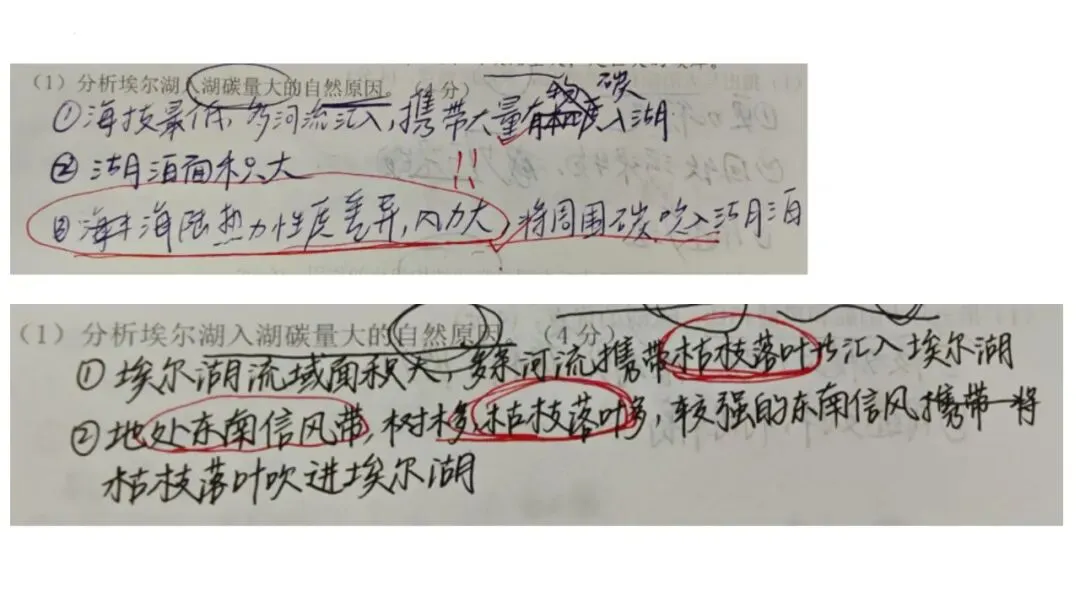 （1）分析埃尔湖入湖碳量大的自然原因。（4分）
①海拔最低，多河流汇入，携带大量有物碳入湖
②湖泊面积大
!!
③海陆热力性质差异，风力大，将周围碳吹入湖泊
（1）分析埃尔湖入湖碳量大的自然原因 （4分）
①埃尔湖流域面积大，多条河流携带枯枝落叶汇入埃尔湖
②地处东南信风带，树多，枯枝落叶多，较强的东南信风携带将
枯枝落叶吹进埃尔湖